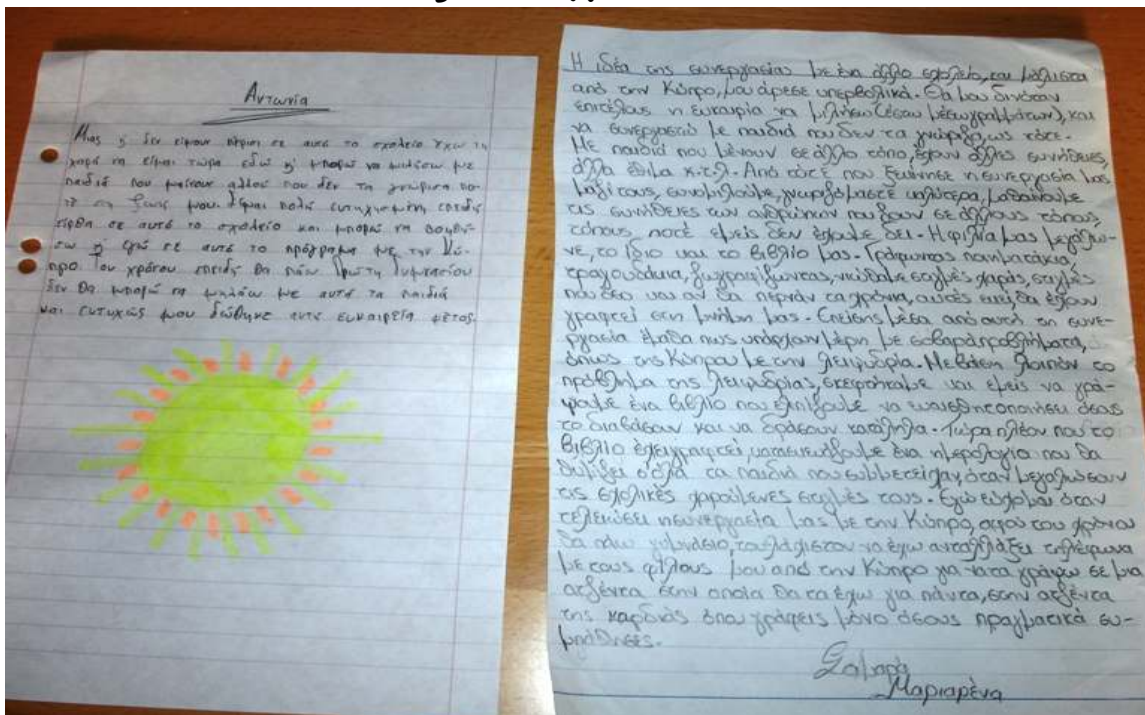 Αντωνία
Μιας ή δεν είμουν πέρισι σε αυτό το σχολείο έχω τη
χαρά να είμαι τώρα εδώ ή μπορώ να μιλάσω με
παιδιά που μένουν αλλού που δεν τα γνώρισα πο-
τέ στη ζωής μου. Είμαι πολύ ευτυχισμένη επειδή
είρθα σε αυτό το σχολείο και μπορώ να βοηθή-
σω ή εγώ σε αυτό το πρόγραμμα με την Κύ-
προ. Του χρόνου επειδή θα πάω Πρώτη Γυμνασίου
δεν θα μπορώ να μιλάω με αυτά τα παιδιά
και ευτυχώς μου δώθηκε αυτή ευκαιρεία φέτος.
Η ιδέα της συνεργασίας με ένα άλλο σχολείο, και μάλιστα
από την Κύπρο, μου άρεσε υπερβολικά. Θα μου δινόταν
επιτέλους η ευκαιρία να μιλήσω (έσω μέσω γραμμάτων), και
να συνεργαστώ με παιδιά που δεν τα γνώριζα, ως τότε.
Με παιδιά που μένουν σε άλλο τόπο, έχουν άλλες συνήθειες,
άλλα έθιμα κ.τ.λ. Από τότε που ξεκίνησε η συνεργασία μας
μαζί τους, συνομιλούμε, γνωριζόμαστε καλύτερα, μαθαίνουμε
τις συνήθειες των ανθρώπων που ζουν σε άλλους τόπους,
τόπους ποτέ εμείς δεν έχουμε δει. Η φιλία μας μεγάλω-
νε, το ίδιο και το βιβλίο μας. Γράφοντας ποιηματάκια
τραγουδάκια, ζωγραφίζωντας, νιώθαμε στιγμές χαράς, στιγμές
που όσο και αν θα περνάν τα χρόνια, αυτές εκεί, θα έχουν
γραφτεί στη μνήμη μας. Επείσης μέσα από αυτή τη συνε-
ργασία έμαθα πως υπάρχουν μέρη με σοβαρά προβλήματα,
όπως της Κύπρου με την λειψυδρία. Με βάση λοιπόν το
πρόβλημα της λειψυδρίας, σκεφτήκαμε και εμείς να γρά-
ψουμε ένα βιβλίο που ελπίζουμε να ευαισθητοποιήσει όσους
το διαβάσουν και να δράσουν κατάλληλα. Τώρα πλέον που το
βιβλίο έχει γραφτεί, κατασκευάζουμε ένα ημερολόγιο που θα
θυμίζει σ'όλα τα παιδιά που συμμετείχαν, όταν μεγαλώσουν
τις σχολικές χαρούμενες στιγμές τους. Εγώ εύχομαι όταν
τελειώσει η συνεργασία μας με την Κύπρο, αφού του χρόνου
θα πάω γυμνάσιο, τουλάχιστον να έχω ανταλλάξει τηλέφωνα
με τους φίλους μου από την Κύπρο για να τα γράψω σε μια
ατζέντα στην οποία θα τα έχω για πάντα, στην ατζέντα
της καρδιάς όπου γράφεις μόνο όσους πραγματικά συ-
μπάθησες.
Σαμαρά
Μαριαρένα